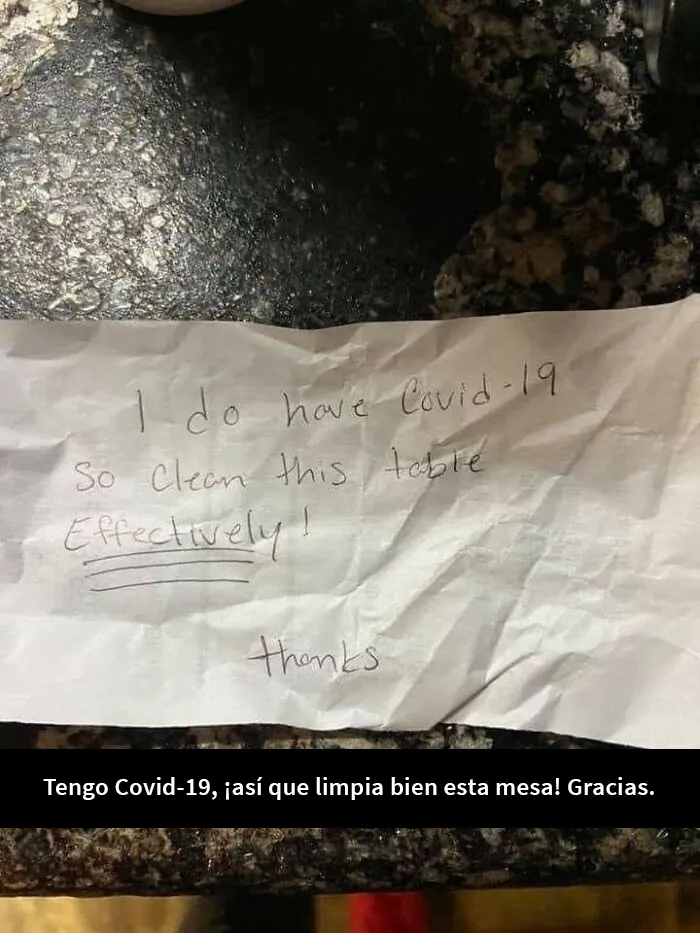 I do have Covid-19
So clean this table
Effectively!
thanks
Tengo Covid-19, ¡así que limpia bien esta mesa! Gracias.